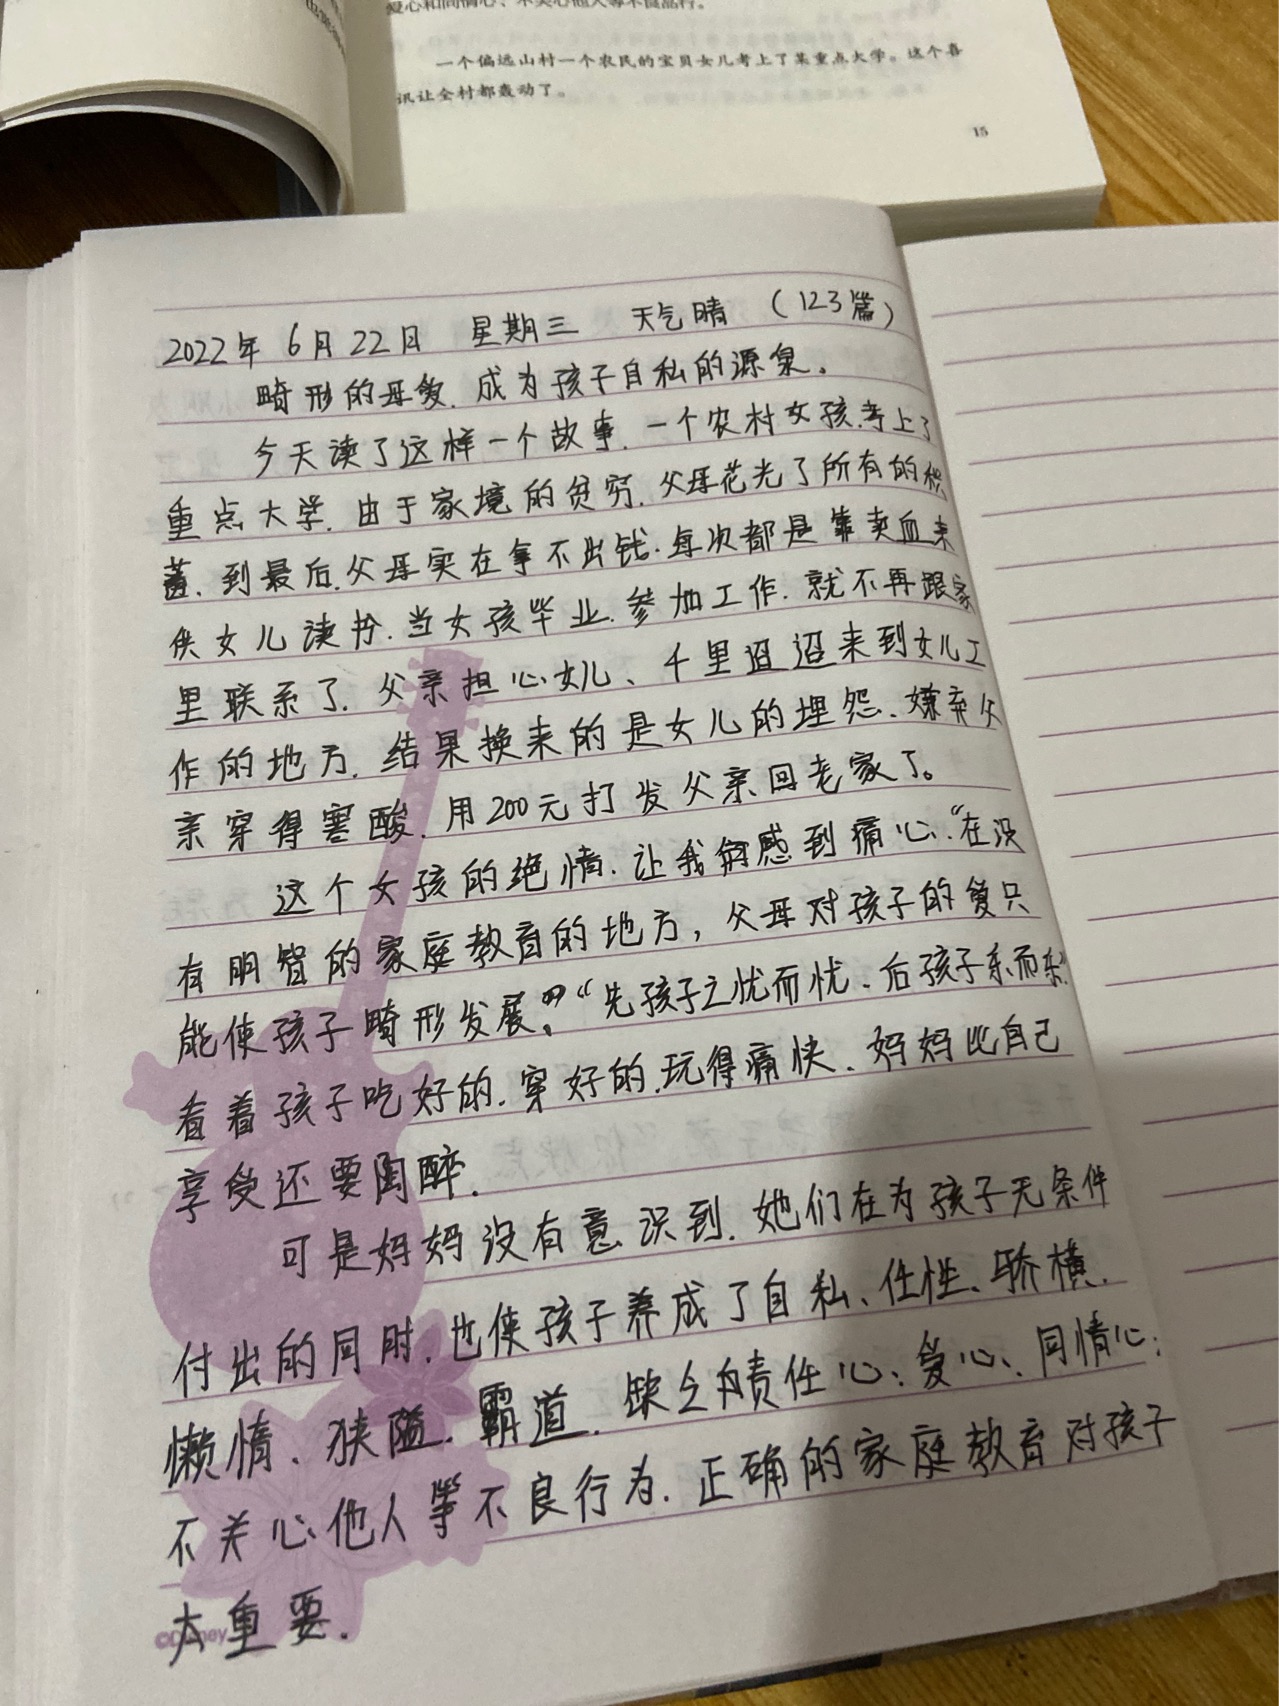 爱心和同情心、不关心他人等不良品行。
一个偏远山村一个农民的宝贝女儿考上了某重点大学。这个喜
讯让全村都轰动了。
15
2022年 6月22日 星期三 天气晴 (123篇)
畸形的母爱.成为孩子自私的源泉.
今天读了这样一个故事.一个农村女孩.考上了
重点大学.由于家境的贫穷.父母花光了所有的积
蓄.到最后.父母实在拿不出钱.每次都是靠卖血来
供女儿读书.当女孩毕业.参加工作.就不再跟家
里联系了.父亲担心女儿、千里迢迢来到女儿工
作的地方.结果换来的是女儿的埋怨.嫌弃父
亲穿得寒酸.用200元打发父亲回老家了。
这个女孩的绝情.让我们感到痛心.“在没
有明智的家庭教育的地方，父母对孩子的爱只
能使孩子畸形发展。”“先孩子之忧而忧、后孩子乐而乐”
看着孩子吃好的.穿好的.玩得痛快、妈妈比自己
享受还要陶醉.
可是妈妈没有意识到.她们在为孩子无条件
付出的同时.也使孩子养成了自私、任性、骄横.
懒惰、狭隘.霸道.缺乏责任心、爱心、同情心、
不关心他人等不良行为.正确的家庭教育对孩子
太重要.
©Disney